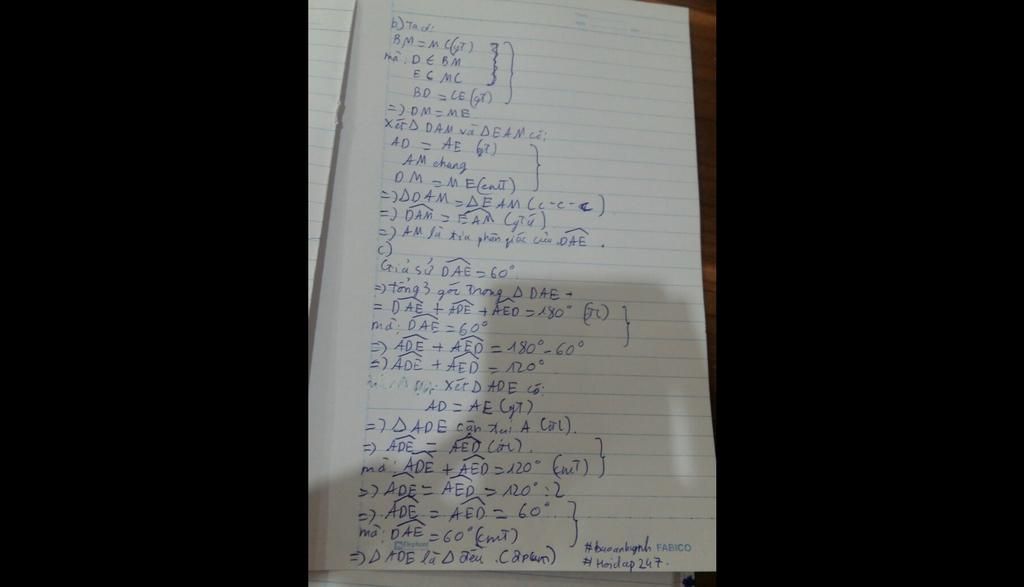 b) Ta có:
BM = MC (gt)
mà: D ∈ BM
E ∈ MC
BD = CE (gt)
=> DM = ME
Xét Δ DAM và Δ EAM có:
AD = AE (gt)
AM chung
DM = ME (cmT)
=> Δ DAM = Δ EAM (c-c-c)
=> DAM = EAM (gtứ)
=> AM là tia phân giác của DAE.
c)
Giả sử DAE = 60°
=> tổng 3 góc trong Δ DAE
= DAE + ADE + AED = 180° (ĐL)
mà: DAE = 60°
=> ADE + AED = 180° - 60°
=> ADE + AED = 120°
Xét Δ ADE có:
AD = AE (gT)
=> Δ ADE cân tại A (ĐL).
=> ADE = AED (ĐL).
mà: ADE + AED = 120° (cmT)
=> ADE = AED = 120° : 2
=> ADE = AED = 60°
mà: DAE = 60° (cmT)
Elephant
=> Δ ADE là Δ đều. (đpcm)
#baoanhqnh FABICO
#Hoidap247.